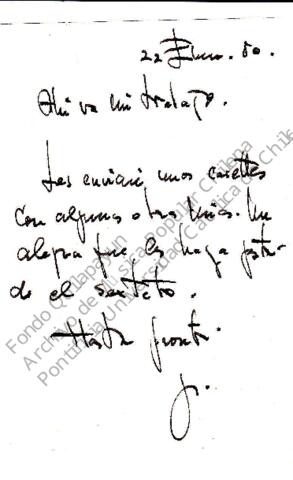 22 Enero. 80.
Ahí va mi trabajo.
Les enviaré unos casettes
con alguna otra mías. Me
alegra que les haya gusta-
do el sexteto.
Hasta pronto
J.
Fondo Quilapayún
Archivo de Música Popular Chilena
Pontificia Universidad Católica de Chile